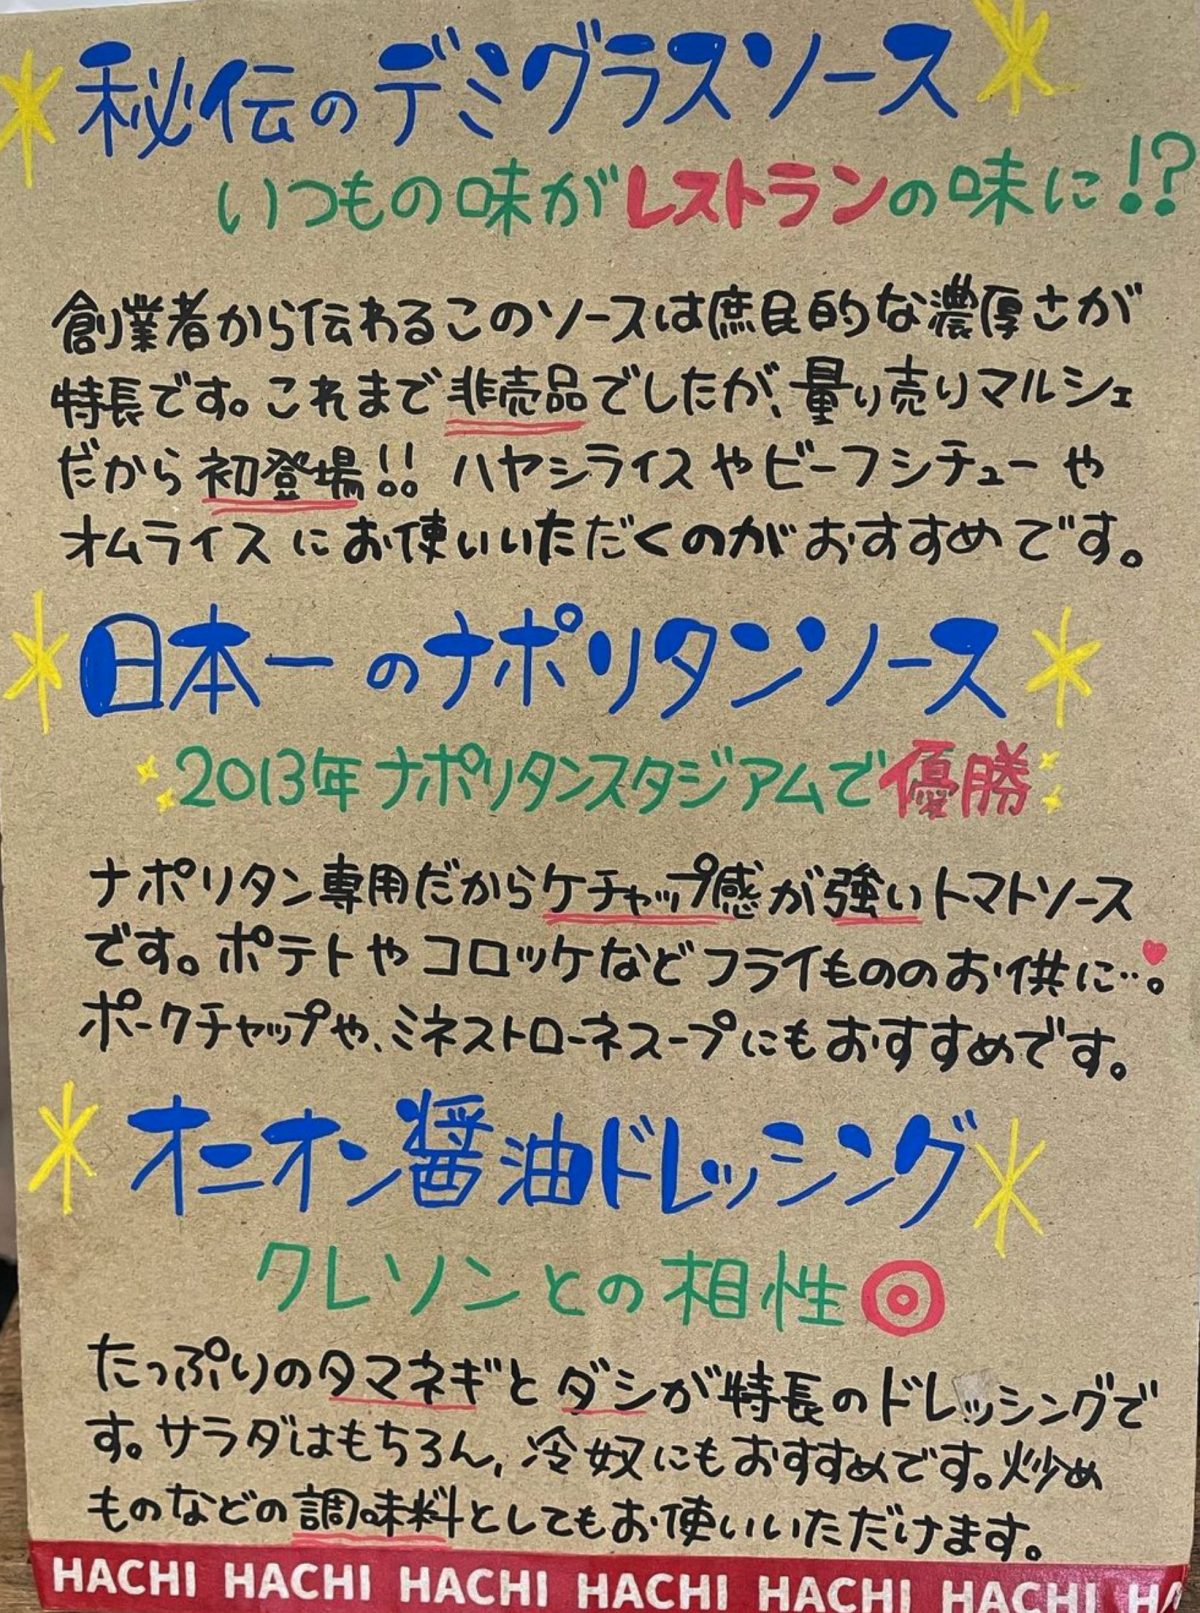 秘伝のデミグラスソース
いつもの味がレストランの味に!?
創業者から伝わるこのソースは庶民的な濃厚さが
特長です。これまで非売品でしたが、量り売りマルシェ
だから初登場!! ハヤシライスやビーフシチューや
オムライスにお使いいただくのがおすすめです。
日本一のナポリタンソース
2013年ナポリタンスタジアムで優勝
ナポリタン専用だからケチャップ感が強いトマトソース
です。ポテトやコロッケなどフライもののお供に…。
ポークチャップや、ミネストローネスープにもおすすめです。
オニオン醤油ドレッシング
クレソンとの相性◎
たっぷりのタマネギとダシが特長のドレッシングで
す。サラダはもちろん、冷奴にもおすすめです。炒め
ものなどの調味料としてもお使いいただけます。
HACHI HACHI HACHI HACHI HACHI HACHI HA